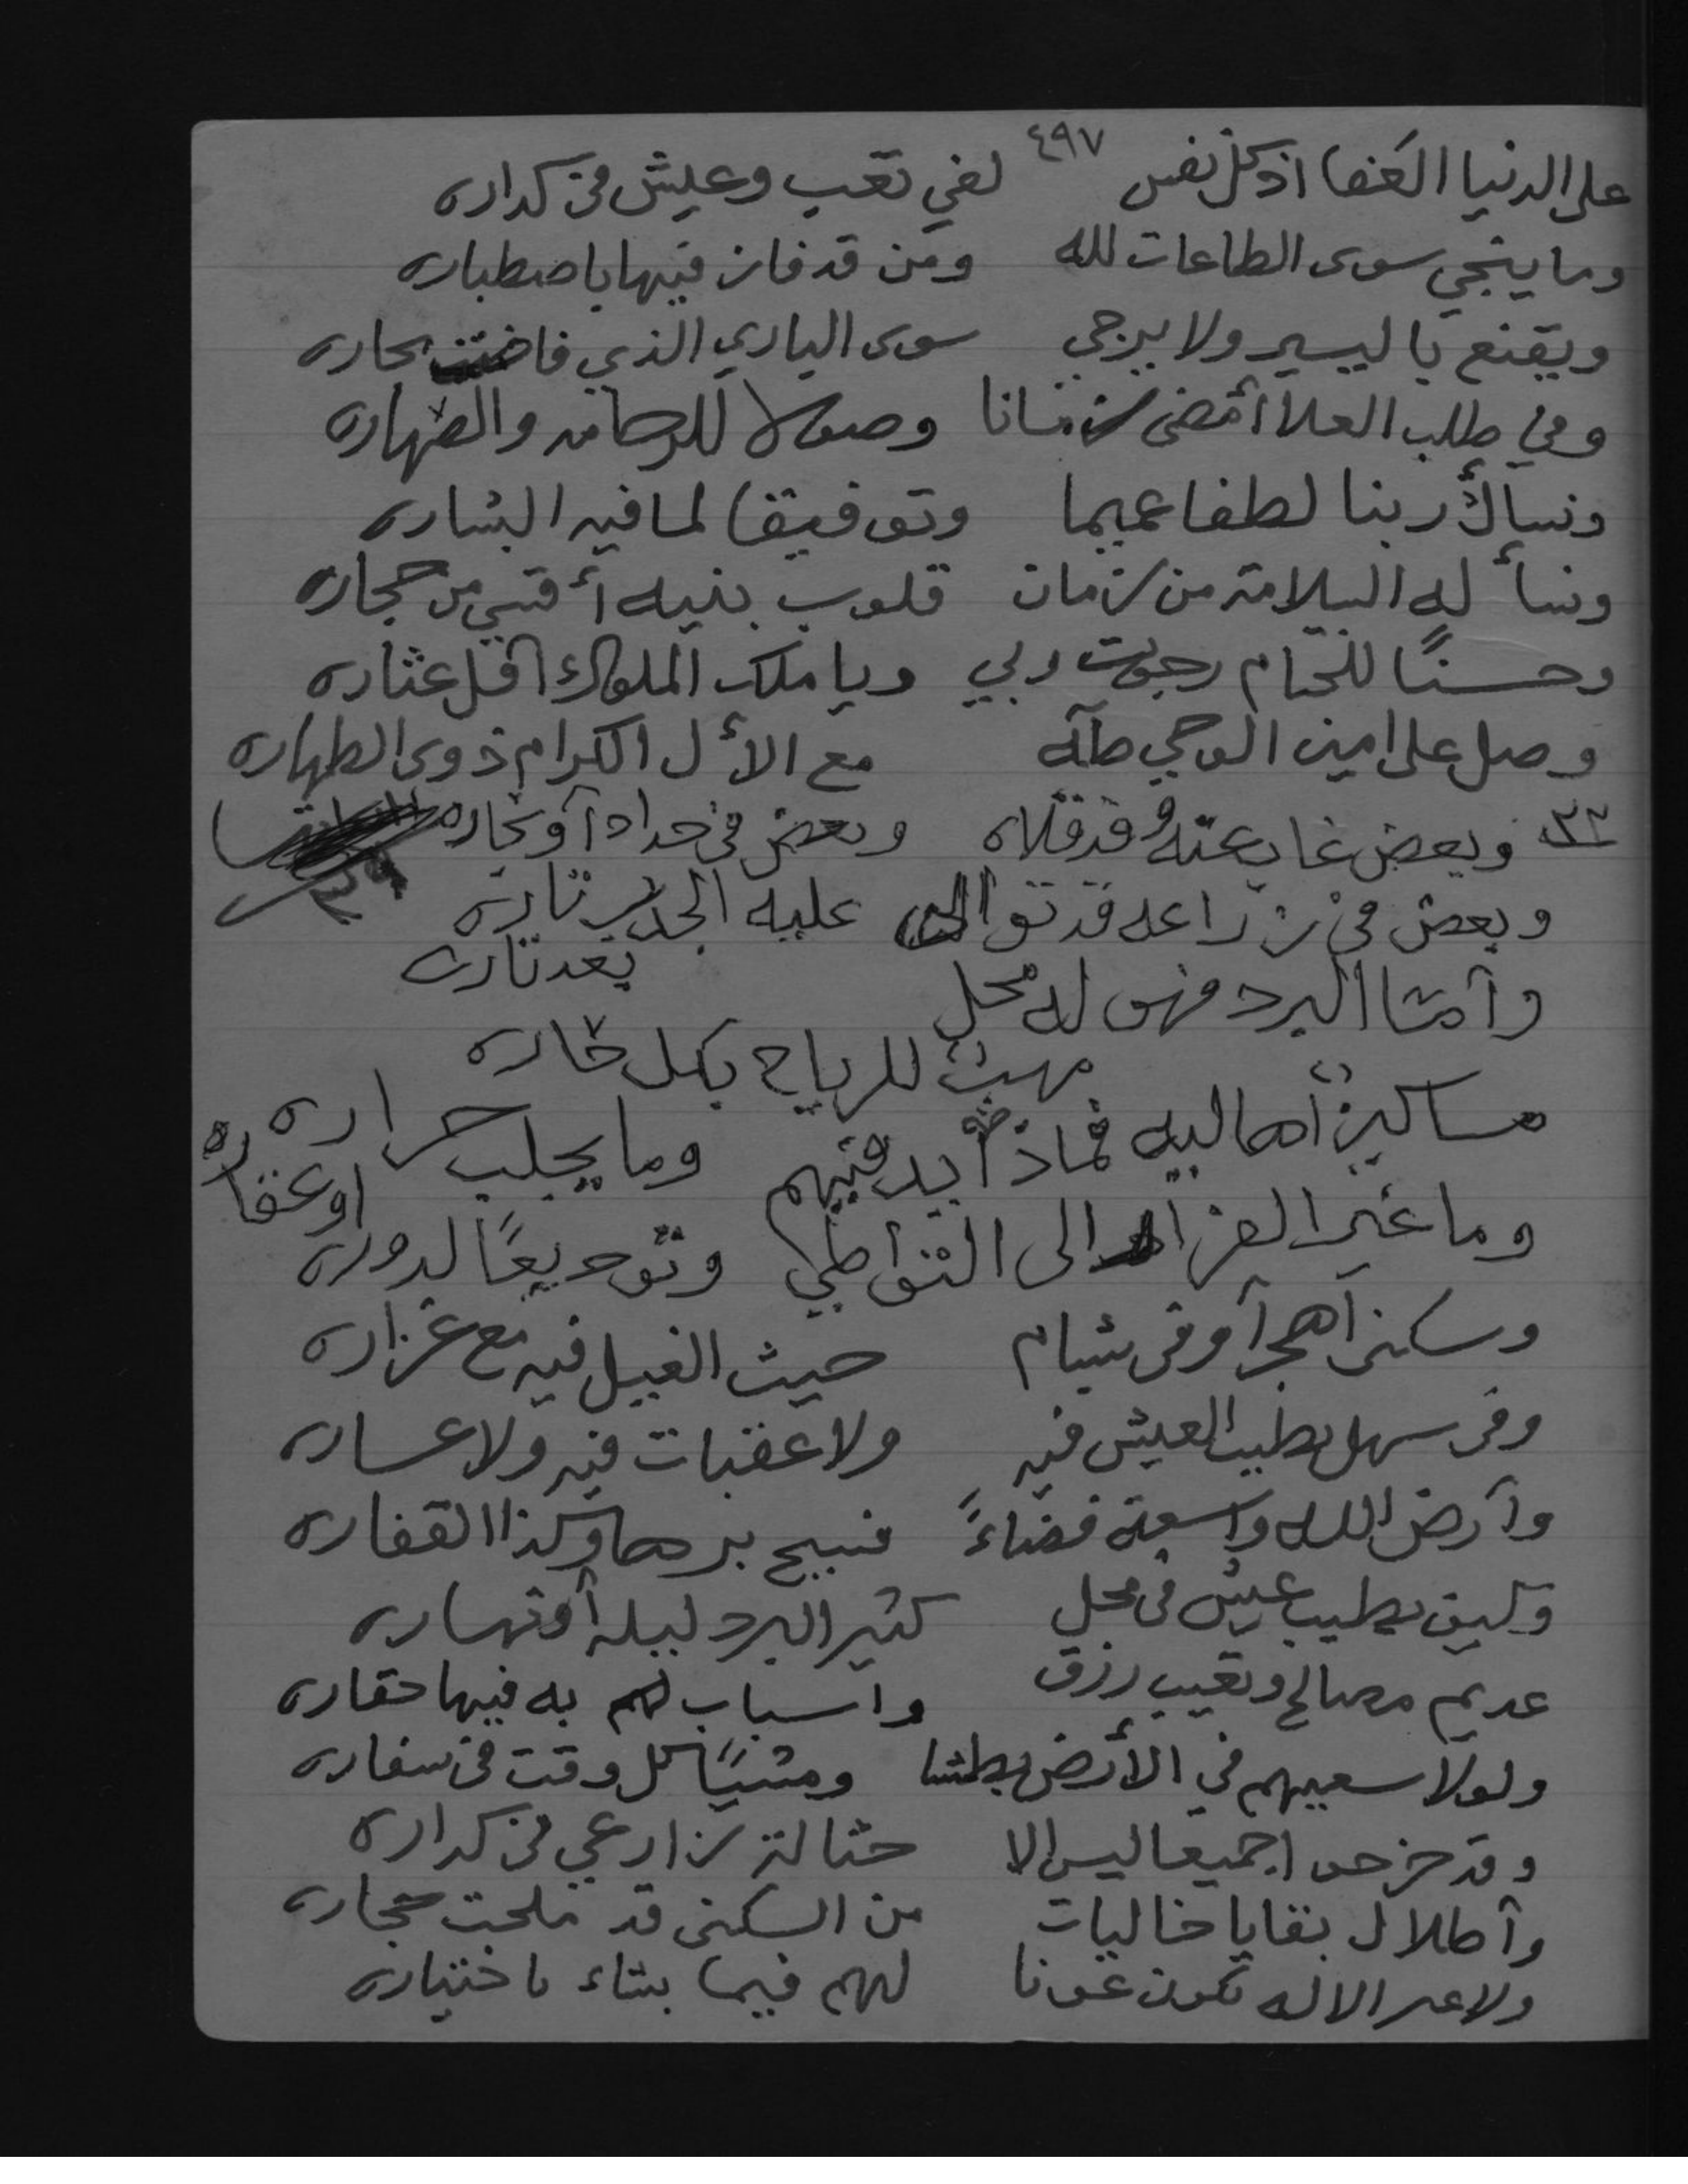 ٤٩٧
على الدنيا العفا اذ كل نفس لفي تعب وعيش في كداره
وما ينجي سوى الطاعات لله ومن قد فاز فيها باصطباره
ويقنع باليسير ولا يرجي سوى الباري الذي فاضت بحاره
وفي طلب العلا أمضى زمانا وصولا للرصانه والمهاره
ونسأل ربنا لطفا عميما وتوفيقا لما فيه البشاره
ونسأله السلامة من زمان قلوب بنيه أقسى من حجاره
وحسنًا للختام رجوت ربي ويا ملك الملوك أقل عثاره
وصل على امين الوحي طآه مع الأل الكرام ذوى الطهاره
٣٣ وبعض غاب عنه وقد قلاه وبعض في حداد أو تجاره
وبعض في زراعه قد توالى عليه الجدب تاره بعد تاره
وأمّا البرد فهو له محل مهبّ للرياح بكل حاره
مساكين أهاليه فماذا يدفيهم وما يجلب حراره
وما غير الفرار الى التواطي وتوديعًا لدوره او عقاره
وسكنى أهجر أو في شبام حيث الغيل فيه مع غزاره
وفي سهل يطيب العيش فيه ولا عقبات فيه ولا عساره
وأرض الله واسعة فضاءً فسيح برها وكذا القفاره
وكيف يطيب عيش في محل كثير البرد ليله أو نهاره
عديم مصالح وتعيب رزق واسباب لهم به فيها حقاره
ولولا سعيهم في الأرض بطشا ومشيًا كل وقت في سفاره
وقد خرجو اجميعا ليس الا حثالة زارعي في كداره
وأطلال بقايا خاليات من السكنى قد ملحت حجاره
ولاعير الاله يكون عونا لهم فيما يشاء باختياره